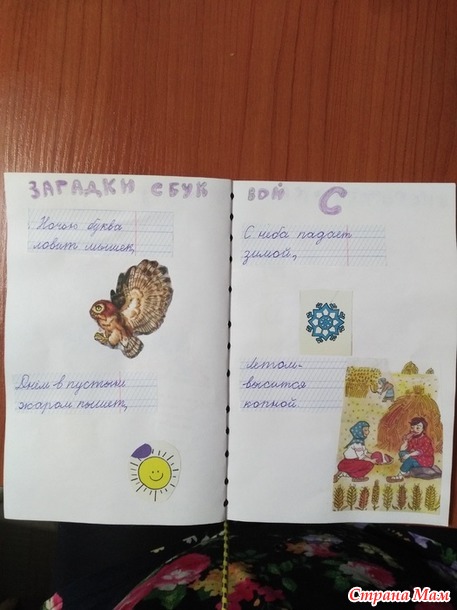 ЗАГАДКИ С БУК
ВОЙ С
Ночью буква
ловит мышек,
Днём в пустыни
жаром пышет,
С неба падает
зимой,
Летом-
высится
копной
Страна Мам